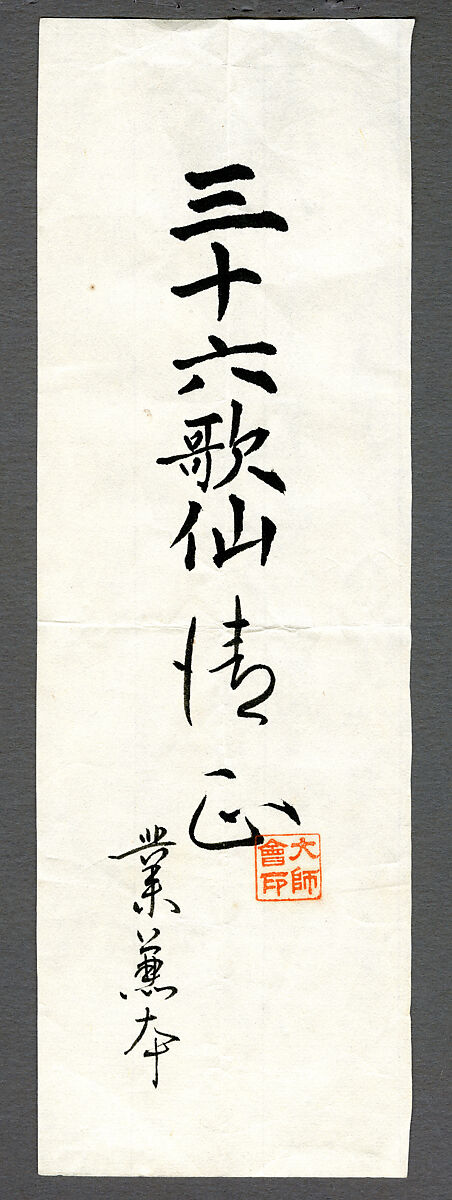 三十六歌仙清正
業兼本
大師會印